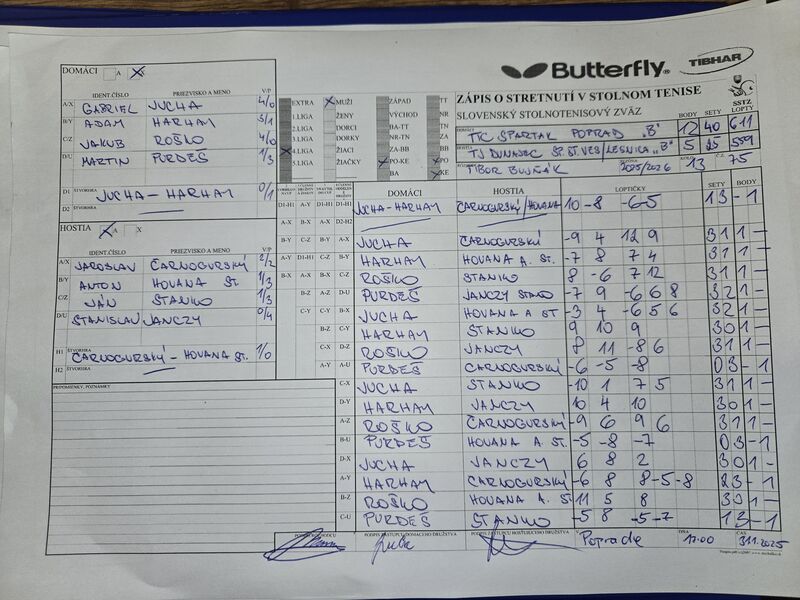 DOMÁCI A X
Butterfly TIBHAR
IDENT.ČÍSLO PRIEZVISKO A MENO V/P
A/X GABRIEL JUCHA 4/0
B/Y ADAM HARHAY 3/1
C/Z JAKUB ROŠKO 4/0
D/U MARTIN PURDEŠ 1/3
D1 ŠTVORHRA JUCHA-HARHAY 0/1
D2
HOSTIA A
IDENT.ČÍSLO PRIEZVISKO A MENO V/P
A/X JAROSLAV ČARNOGURSKÝ 2/2
B/Y ANTON HOVANA ST 1/3
C/Z JÁN STANKO 1/3
D/U STANISLAV JANCZY 0/4
H1 ŠTVORHRA ČARNOGURSKÝ-HOVANA ST. 1/0
H2 ŠTVORHRA
PRIPOMIENKY, POZNÁMKY
EXTRA MUŽI ZÁPAD TT
1.LIGA ŽENY VÝCHOD NR
2.LIGA DORCI BA-TT TN
3.LIGA DORKY NR-TN ZA
ŽIACI ZA-BB BB
LIGA ŽIAČKY PO-KE PO
BA KE
ZÁPIS O STRETNUTÍ V STOLNOM TENISE
SLOVENSKÝ STOLNOTENISOVÝ ZVÄZ
SSTZ
BODY SETY LOPTY
TTC SPARTAK POPRAD "B" 12 40 611
TJ DUNAJEC SP.ST.VES/LESNICA "B" 5 25 559
TIBOR BUJŇÁK 2025/2026 13 75
DOMÁCI HOSTIA LOPTIČKY SETY BODY
JUCHA-HARHAY ČARNOGURSKÝ/HOVANA 10 -8 -6 -5 1 3 - 1
JUCHA ČARNOGURSKÝ -9 4 12 9 3 1 1 -
HARHAY HOVANA A. ST -7 8 7 4 3 1 1 -
ROŠKO STANKO 8 -6 7 12 3 1 1 -
PURDEŠ JANCZY -7 9 -6 6 8 3 2 1 -
JUCHA HOVANA A ST -3 4 -6 5 6 3 2 1 -
HARHAY STANKO 9 10 9 3 0 1 -
ROŠKO JANCZY 8 11 -8 6 3 1 1 -
PURDEŠ ČARNOGURSKÝ -6 -5 -8 0 3 - 1
JUCHA STANKO -10 1 7 5 3 1 1 -
HARHAY JANCZY 10 4 10 3 0 1 -
ROŠKO ČARNOGURSKÝ -9 6 9 6 3 1 1 -
PURDEŠ HOVANA A ST. -5 -8 -7 0 3 - 1
JUCHA JANCZY 6 8 2 3 0 1 -
HARHAY ČARNOGURSKÝ -6 8 8 -5 -8 2 3 - 1
ROŠKO HOVANA A. ST 11 5 8 3 0 1 -
PURDEŠ STANKO -5 8 -5 -7 1 3 - 1
PODPIS ZÁSTUPCU DOMÁCEHO DRUŽSTVA PODPIS ZÁSTUPCU HOSŤUJÚCEHO DRUŽSTVA V Poprade DŇA 17:00 ČAS 3.11.2025